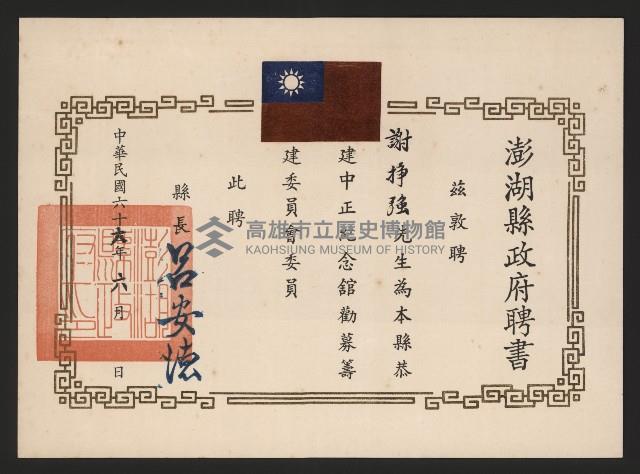 澎湖縣政府聘書
茲敦聘
謝掙強先生為本縣恭
建中正紀念館勸募籌
建委員會委員
此聘
縣長 呂安德
中華民國六十六年六月 日
高雄市立歷史博物館
KAOHSIUNG MUSEUM OF HISTORY